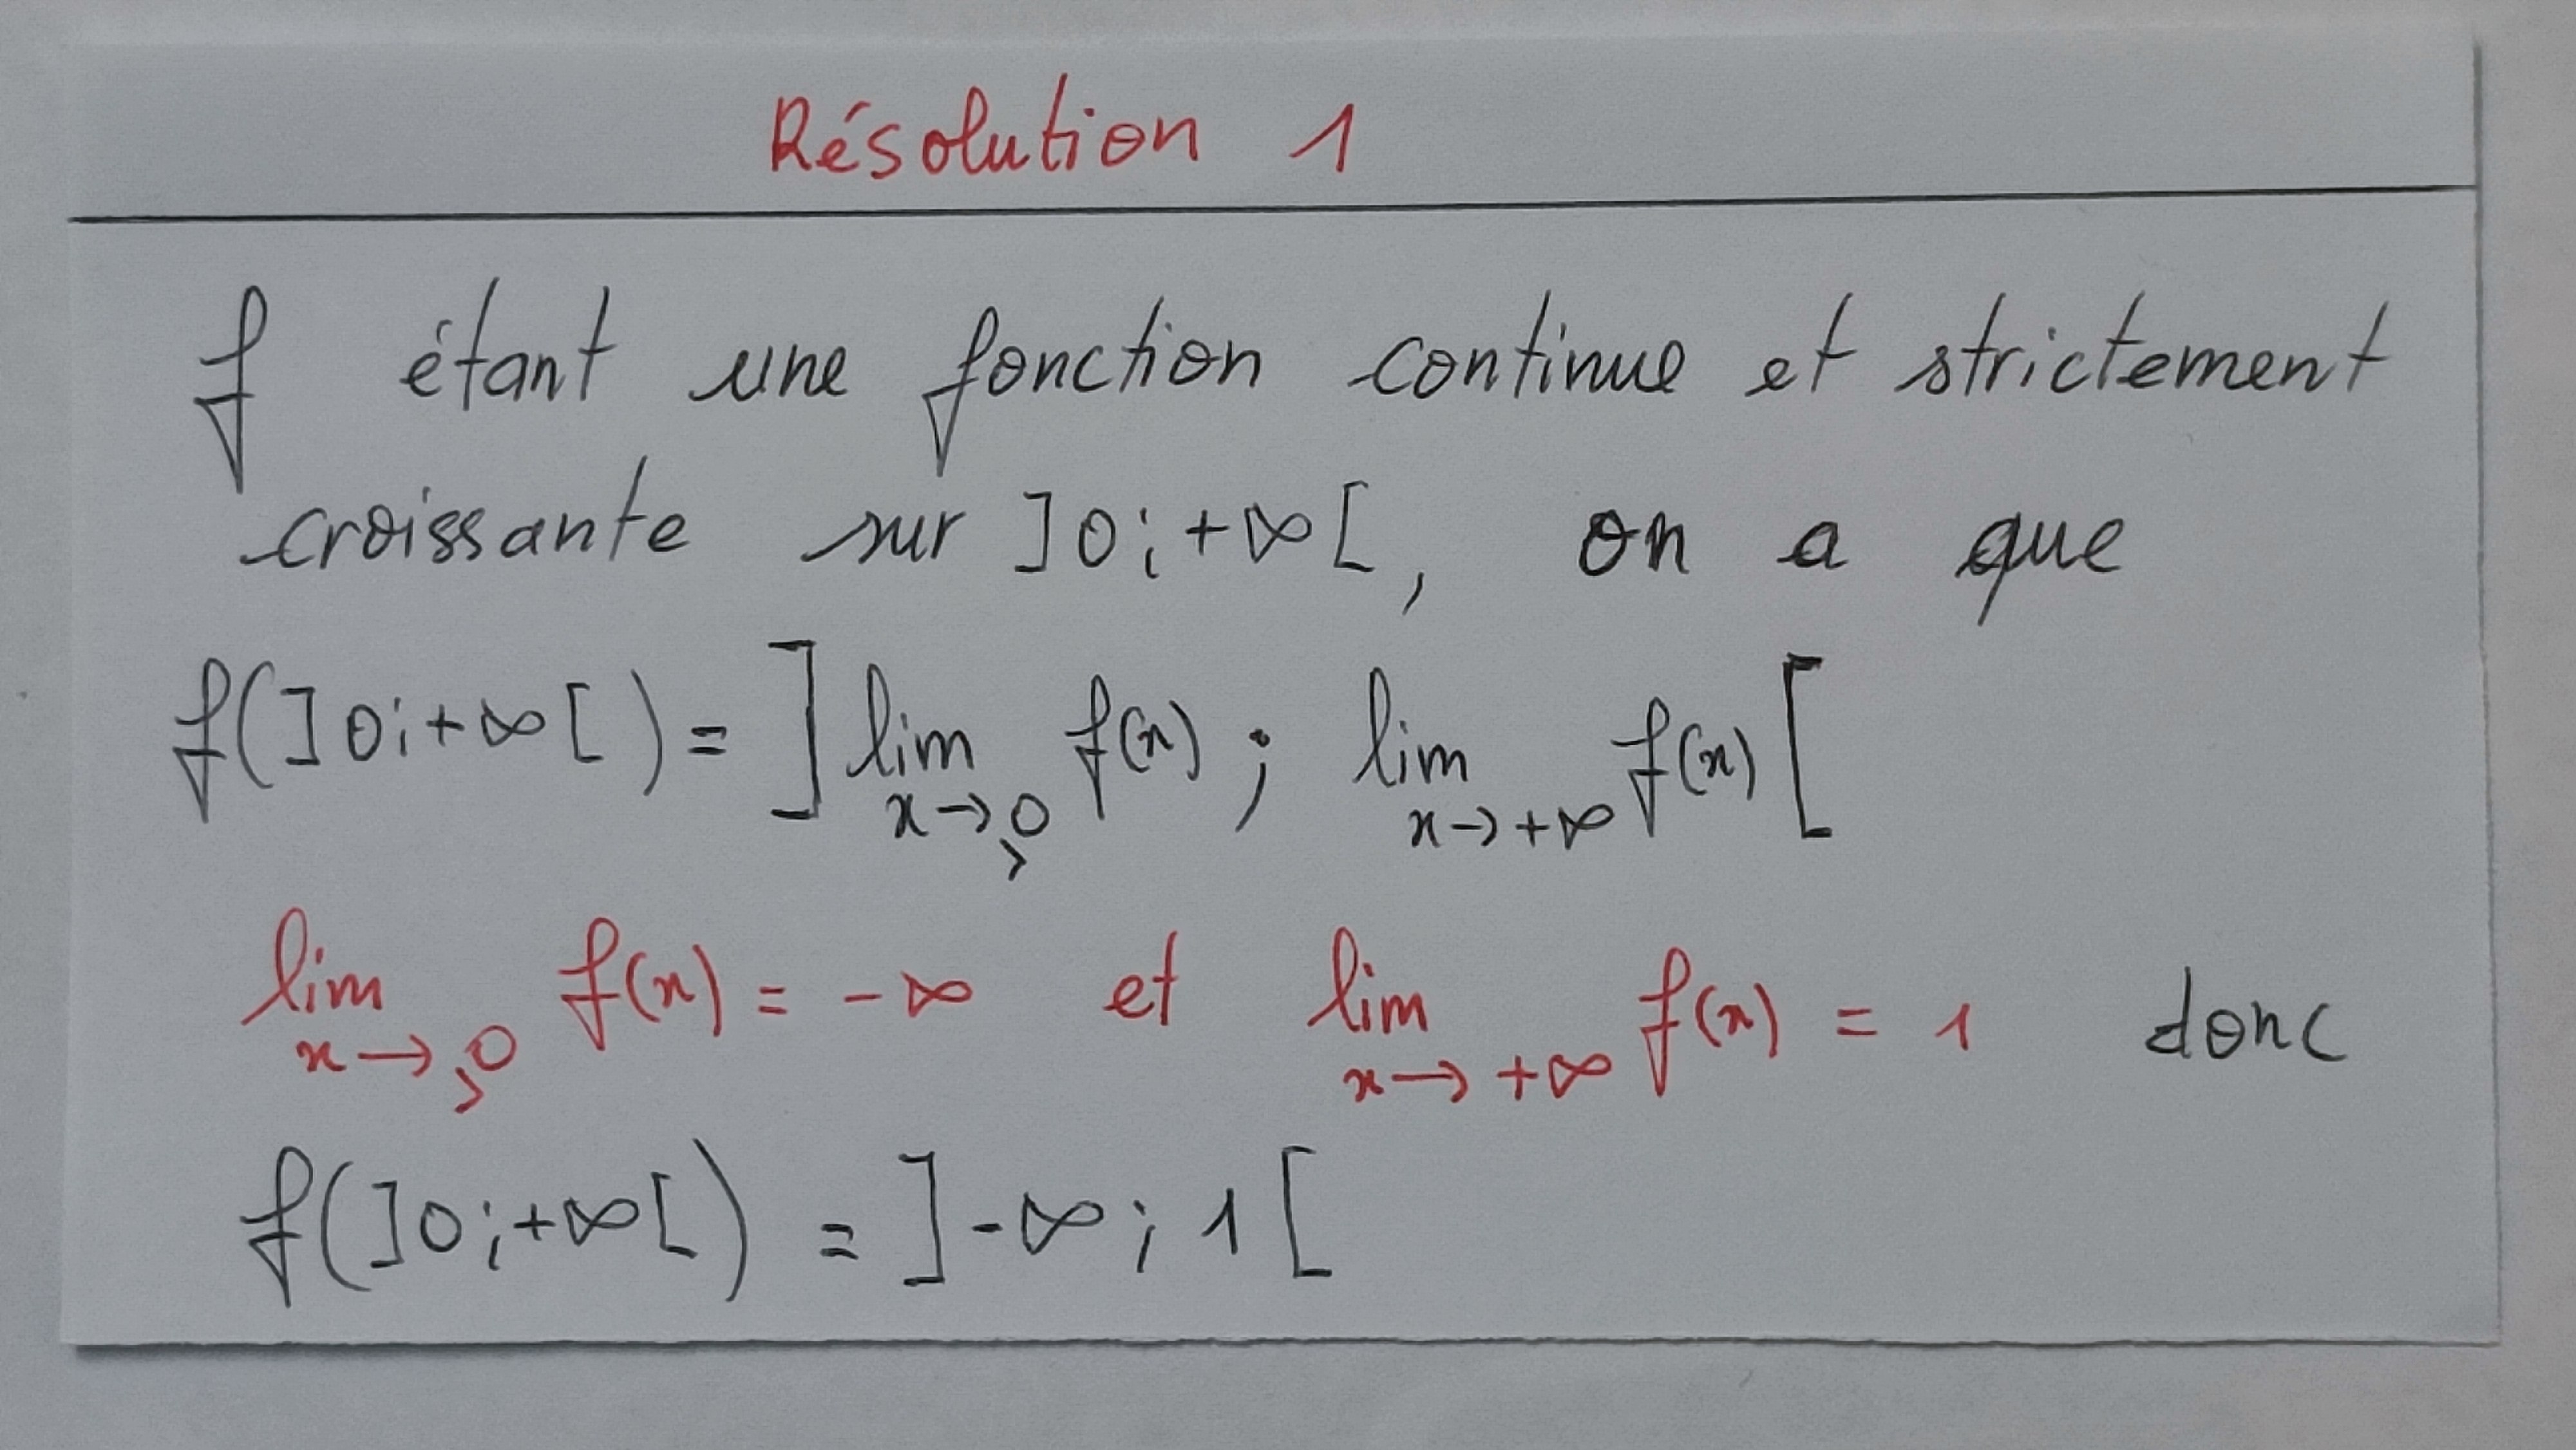 Résolution 1
f étant une fonction continue et strictement
croissante sur ]0;+∞[, on a que
f(]0;+∞[) = ]lim x→>0 f(x) ; lim x→+∞ f(x)[
lim x→>0 f(x) = -∞ et lim x→+∞ f(x) = 1 donc
f(]0;+∞[) = ]-∞;1[